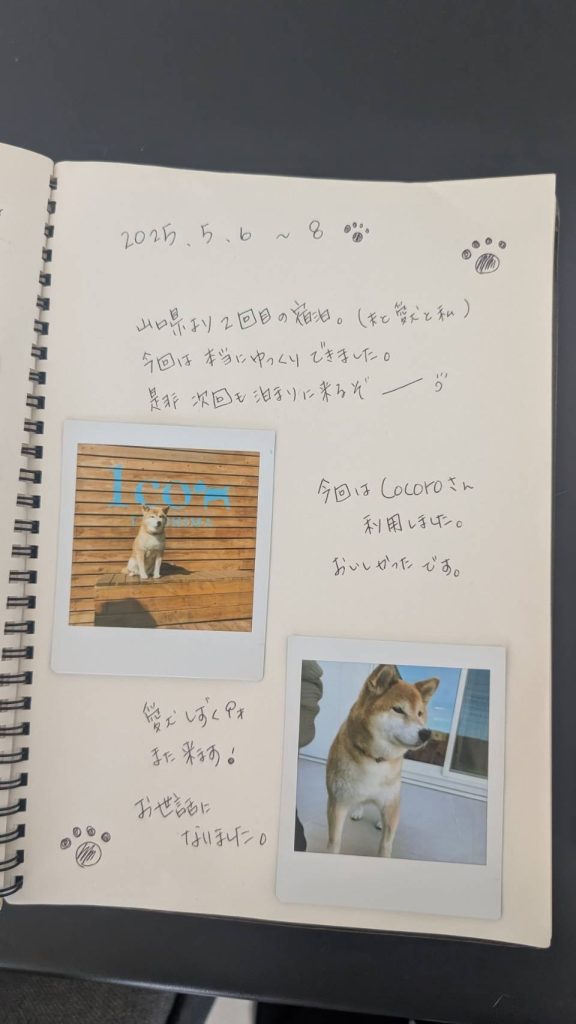 2025.5.6 ~ 8
山口県より2回目の宿泊。(夫と愛犬と私)
今回は本当にゆっくりできました。
是非次回も泊まりに来るぞー
Ico
今回はCocoroさん
利用しました。
おいしかったです。
愛犬しずく9才
また来ます!
お世話に
なりました。